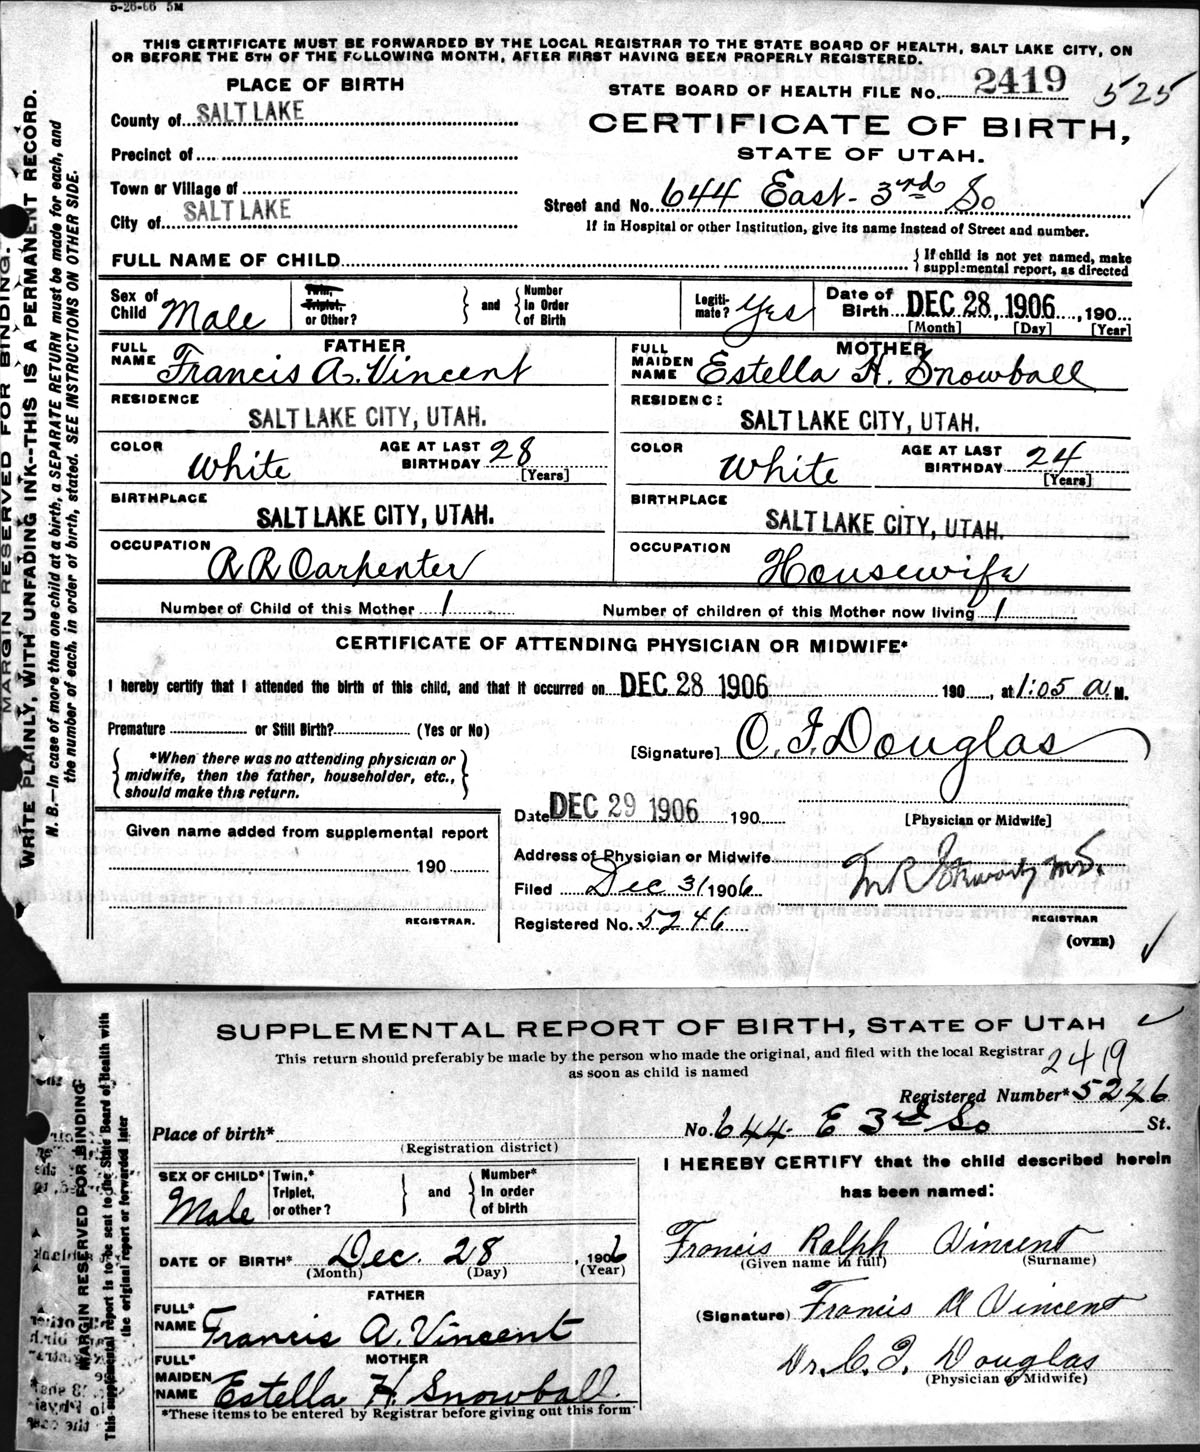 5-26-06 5M
THIS CERTIFICATE MUST BE FORWARDED BY THE LOCAL REGISTRAR TO THE STATE BOARD OF HEALTH, SALT LAKE CITY, ON
OR BEFORE THE 5TH OF THE FOLLOWING MONTH, AFTER FIRST HAVING BEEN PROPERLY REGISTERED.
PLACE OF BIRTH
STATE BOARD OF HEALTH FILE NO. 2419 525
County of SALT LAKE
CERTIFICATE OF BIRTH,
Precinct of
STATE OF UTAH.
Town or Village of
Street and No. 644 East - 3rd So
City of SALT LAKE
If in Hospital or other Institution, give its name instead of Street and number.
FULL NAME OF CHILD
If child is not yet named, make
supplemental report, as directed
Sex of Child Male
Twin, Triplet, or Other? and Number In Order of Birth
Legiti-mate? Yes
Date of Birth DEC 28, 1906, 190
[Month] [Day] [Year]
FATHER
FULL NAME Francis A. Vincent
MOTHER
FULL MAIDEN NAME Estella H. Snowball
RESIDENCE SALT LAKE CITY, UTAH.
RESIDENCE SALT LAKE CITY, UTAH.
COLOR White AGE AT LAST BIRTHDAY 28 [Years]
COLOR White AGE AT LAST BIRTHDAY 24 [Years]
BIRTHPLACE SALT LAKE CITY, UTAH.
BIRTHPLACE SALT LAKE CITY, UTAH.
OCCUPATION R R Carpenter
OCCUPATION Housewife
Number of Child of this Mother 1 Number of children of this Mother now living 1
CERTIFICATE OF ATTENDING PHYSICIAN OR MIDWIFE*
I hereby certify that I attended the birth of this child, and that it occurred on DEC 28 1906 190, at 1:05 a. M.
Premature or Still Birth? (Yes or No)
[Signature] C. F. Douglas
*When there was no attending physician or
midwife, then the father, householder, etc.,
should make this return.
Date DEC 29 1906 190
[Physician or Midwife]
Given name added from supplemental report
190
REGISTRAR.
Address of Physician or Midwife
Filed Dec 31 1906
REGISTRAR
Registered No. 5246
(OVER)
MARGIN RESERVED FOR BINDING.
WRITE PLAINLY, WITH UNFADING INK--THIS IS A PERMANENT RECORD.
N. B.—In case of more than one child at a birth, a SEPARATE RETURN must be made for each, and
the number of each, in order of birth, stated. SEE INSTRUCTIONS ON OTHER SIDE.
SUPPLEMENTAL REPORT OF BIRTH, STATE OF UTAH
This return should preferably be made by the person who made the original, and filed with the local Registrar
as soon as child is named
2419
Registered Number* 5246
Place of birth* No. 644 E 3rd So St.
(Registration district)
SEX OF CHILD* Male
Twin,* Triplet, or other? and Number* In order of birth
I HEREBY CERTIFY that the child described herein
has been named:
DATE OF BIRTH* Dec. 28, 1906
(Month) (Day) (Year)
Francis Ralph Vincent
(Given name in full) (Surname)
FATHER
FULL* NAME Francis A. Vincent
(Signature) Francis A Vincent
MOTHER
FULL* MAIDEN NAME Estella H. Snowball
Dr. C. F. Douglas
(Physician or Midwife)
*These items to be entered by Registrar before giving out this form
MARGIN RESERVED FOR BINDING
This supplemental report is to be sent to the State Board of Health with
the original report or forwarded later